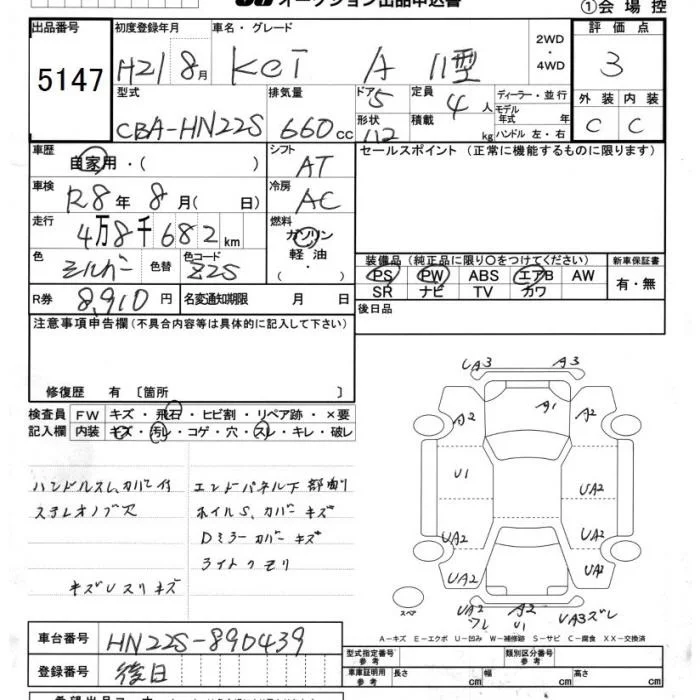 オークション出品申込書
①会場控
出品番号 初度登録年月 車名・グレード 2WD・4WD 評価点
5147 H21 8月 Kei A 11型 3
型式 排気量 ドア 5 定員 4人 ディーラー・並行 外装 内装
CBA-HN22S 660cc 形状 112 積載 kg モデル年式 年 C C
ハンドル 左・右
車歴 自家用・( ) シフト AT セールスポイント (正常に機能するものに限ります)
車検 R8年 8月( 日) 冷房 AC
走行 4万8千682km 燃料 ガソリン
軽油
・( )
色 シルバー 色替 色コード Z2S 装備品(純正品に限り〇をつけてください) 新車保証書
PS PW ABS エアB AW 有・無
R券 8,910円 名変通知期限 月 日 SR ナビ TV カワ
注意事項申告欄(不具合内容等は具体的に記入して下さい) 後日品
修復歴 有 〔箇所 〕
検査員 FW キズ・飛石・ヒビ割・リペア跡・×要
記入欄 内装 キズ・汚レ・コゲ・穴・スレ・キレ・破レ
UA3 A3
A2 A1 A2
U1 UA2
UA2 UA2
UA2 UA2
UA2 A2 UA3ズレ
ワレ U1
ハンドルスレ、カバー付 エンドパネル下部曲り
ステレオノブ欠 ホイルS、カバーキズ
Dミラーカバーキズ
ライトクモリ
キズUスリキズ
スペア
A-キズ E-エクボ U-凹み W-補修跡 S-サビ C-腐食 XX-交換済
車台番号 HN22S-890439
登録番号 後日
型式指定番号 参考 類別区分番号 参考
車庫証明用 参考 長さ cm 幅 cm 高さ cm
希望出品コーナー